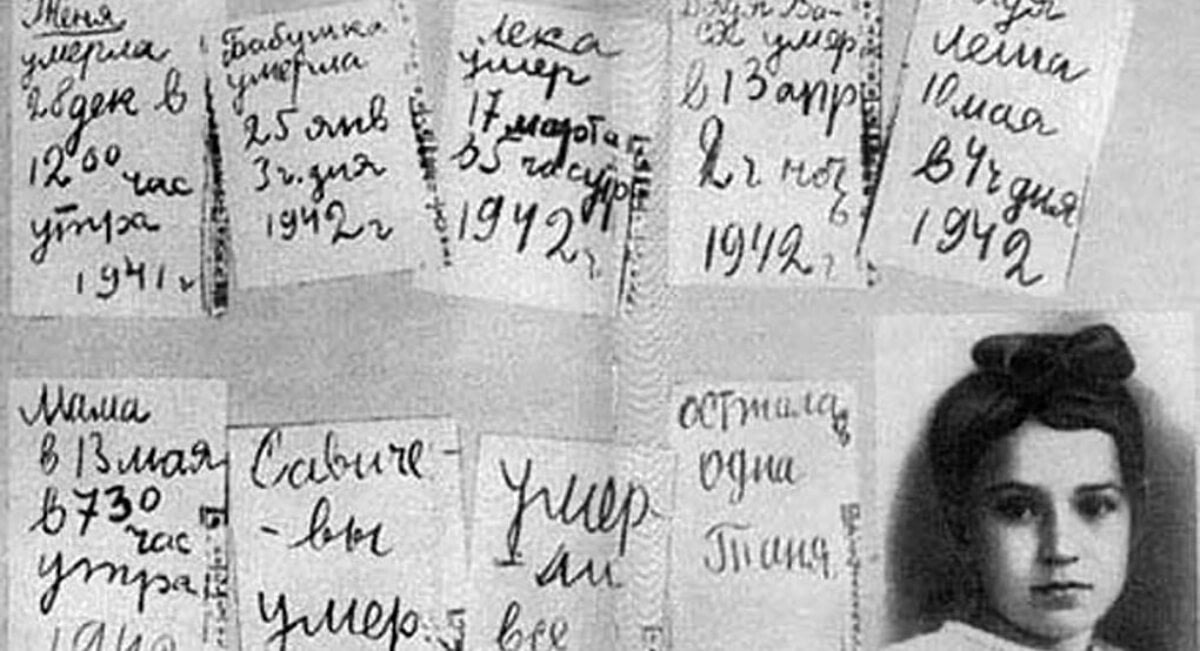 Женя
умерла
28 дек в
12 00 час
утра
1941 г
Бабушка
умерла
25 янв
3 ч. дня
1942 г
Лека
умер
17 марта
в 5 час утр
1942 г.
Дядя Ва-
ся умер
в 13 апр
2 ч ноч
1942 г
Дядя
Леша
10 мая
в 4 ч дня
1942
Мама
в 13 мая
в 7 30
час
утра
1942
Савиче-
-вы
умер.
Умер-
-ли
все
осталась
одна
Таня